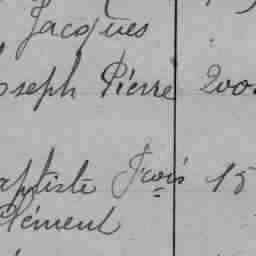 Jacques
oseph Pierre 200
aptiste Fcois 15
Clément